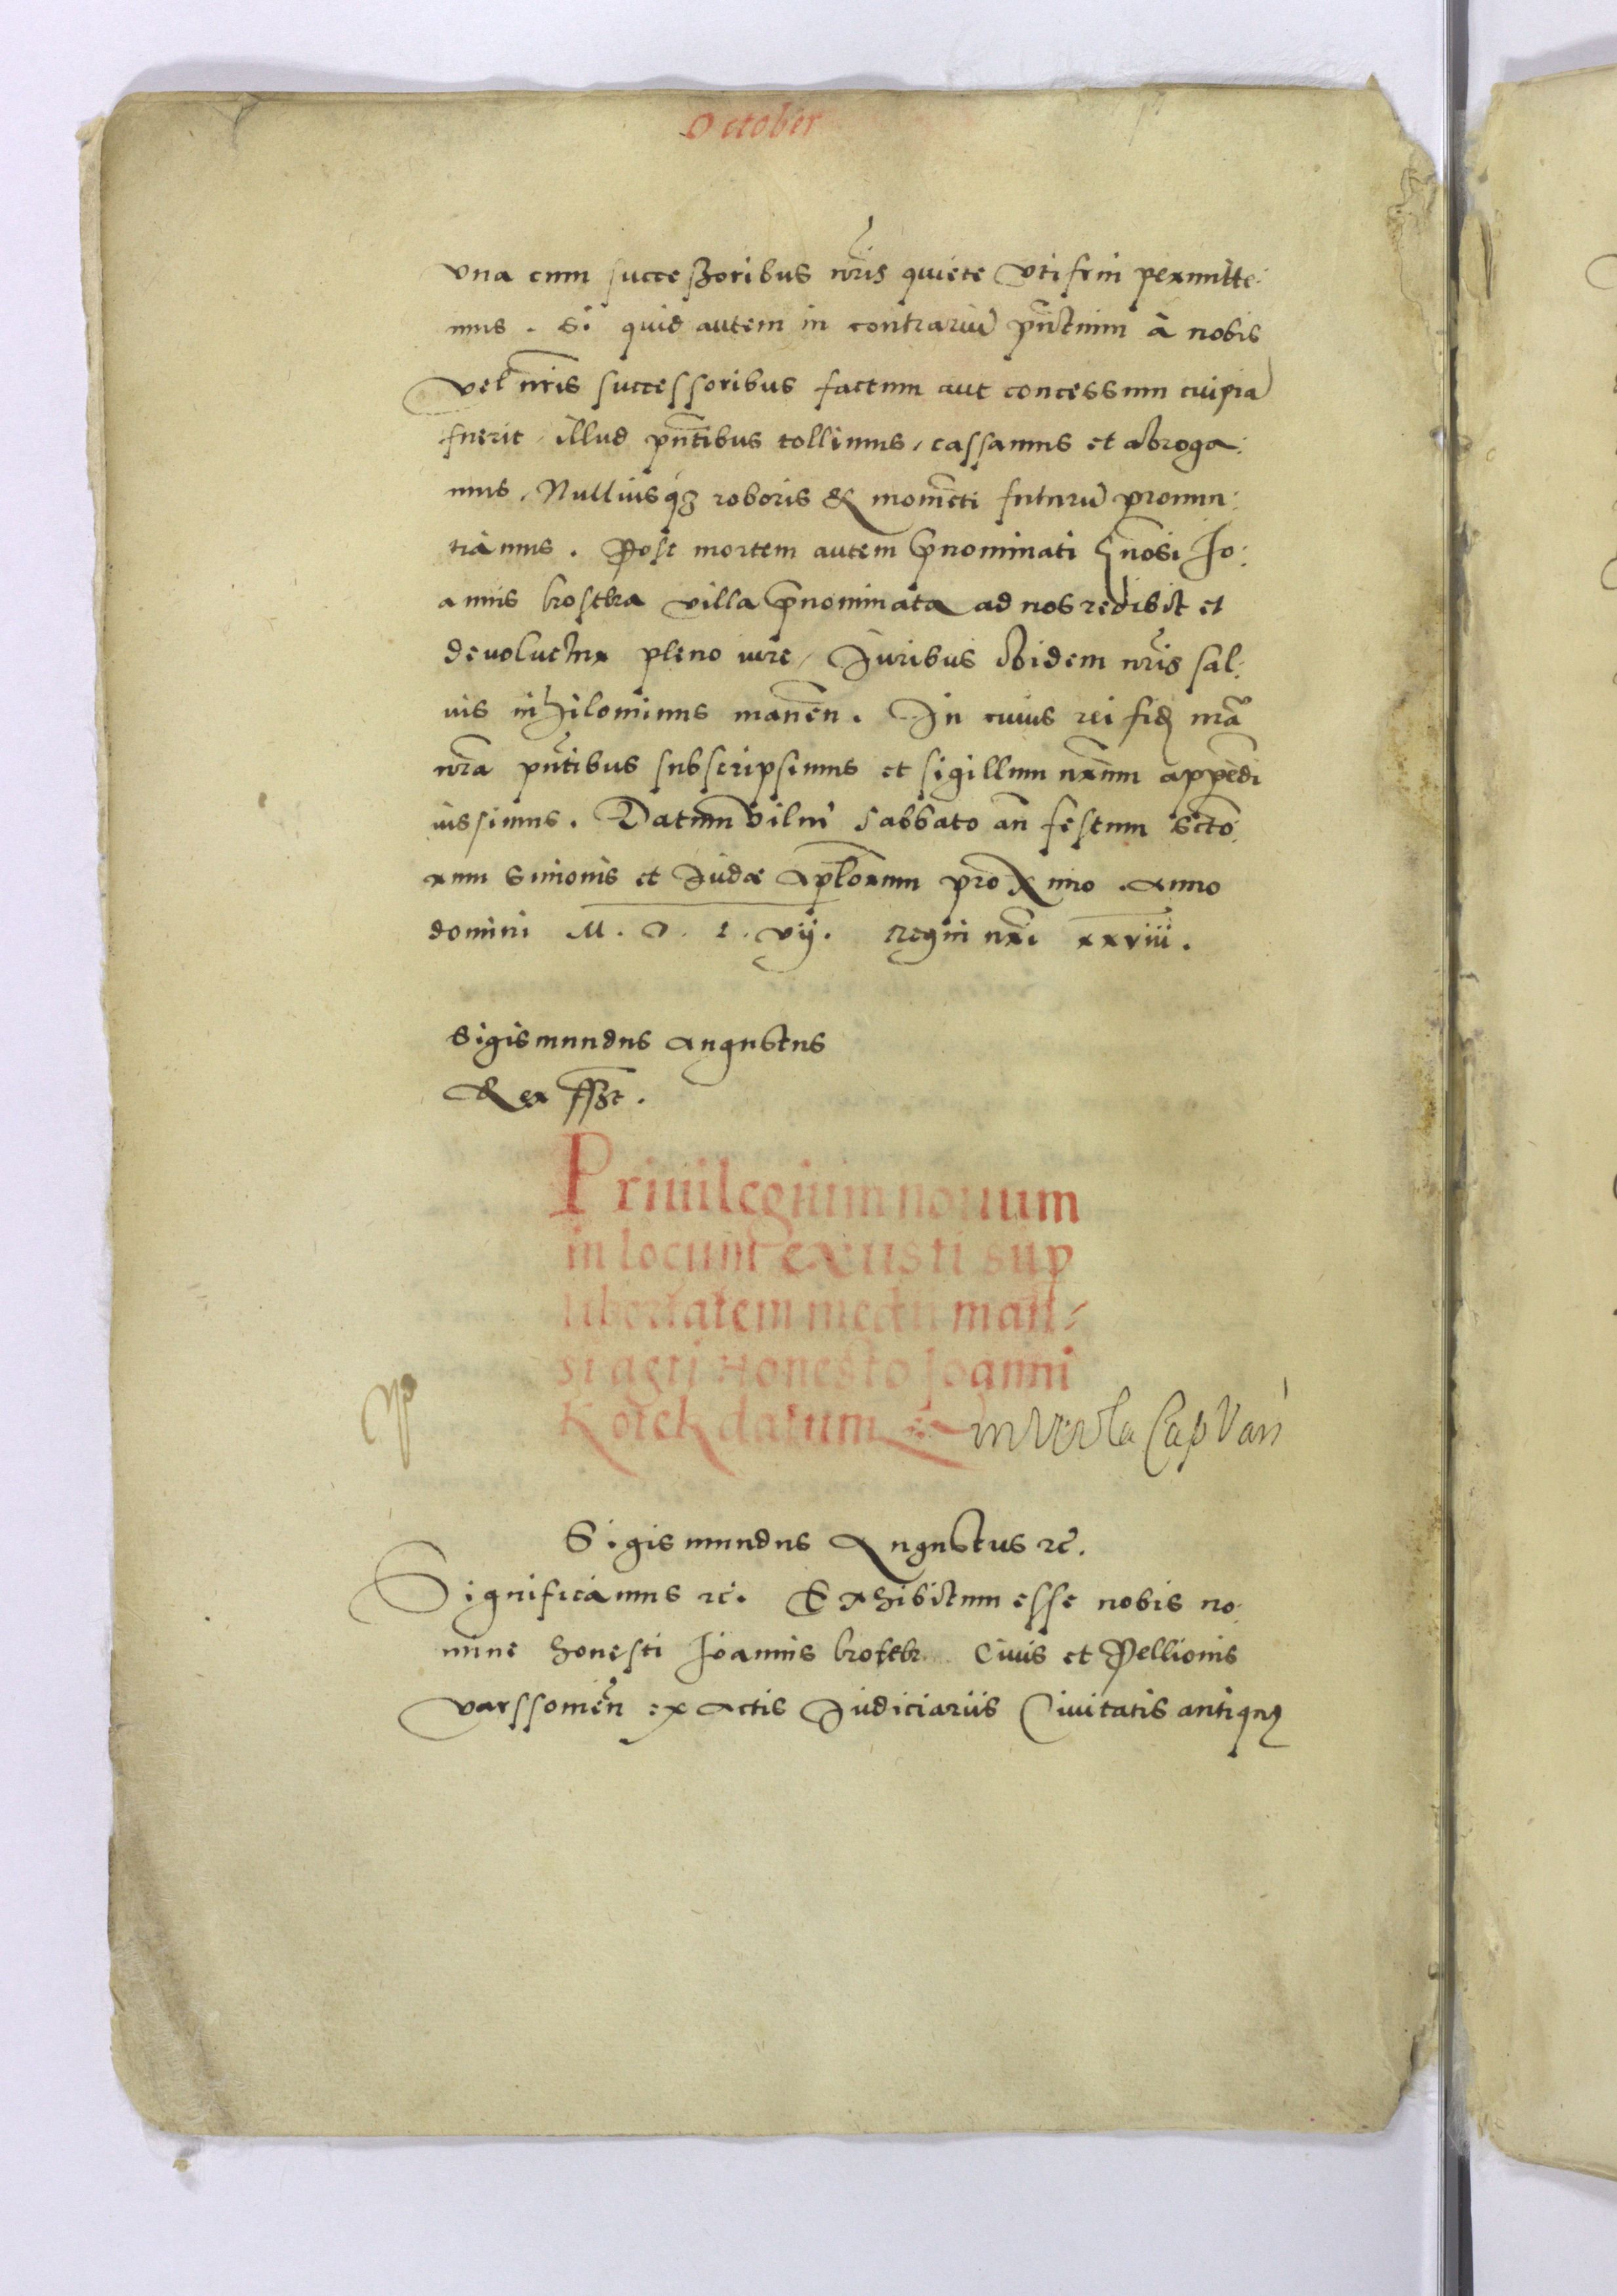 October
vna cum successoribus nr̄is quiete vti frui permitte:
mus. Si quid autem in contrariū pn̄tium à nobis
vel nr̄is successoribus factum aut concessum cuipiā
fuerit, illud pn̄tibus tollimus, cassamus et abroga:
mus. Nulliusqʒ roboris & momēti futurū pronun:
tiamus. Post mortem autem p̄nominati gn̄osi Jo:
annis villa p̄nominata ad nos redibit et
devoluetur pleno iure, Juribus ibidem nr̄is sal:
uis nihilominus manēn. In cuius rei fidē mā
nr̄a pn̄tibus subscripsimus et sigillum nr̄um appēdi
iussimus. Datum Vilnī Sabbato an̄ festum Scto
rum Simonis et Judæ Apl̄orum proximo. Anno
domini M. D. L. vij. Regni nr̄i xxviii.
Sigismundus Augustus
Rex sszt.
Priuilegium nouum
in locum exusti sup
libertatem medii man-
si agri Honesto Joanni
Kotek datum
Sigismundus Augustus rc̄.
Significamus rc̄. Exhibitum esse nobis no
mine honesti Joannis Ciuis et Pellionis
varssouien̄ ex Actis Judiciariis Ciuitatis antiquę